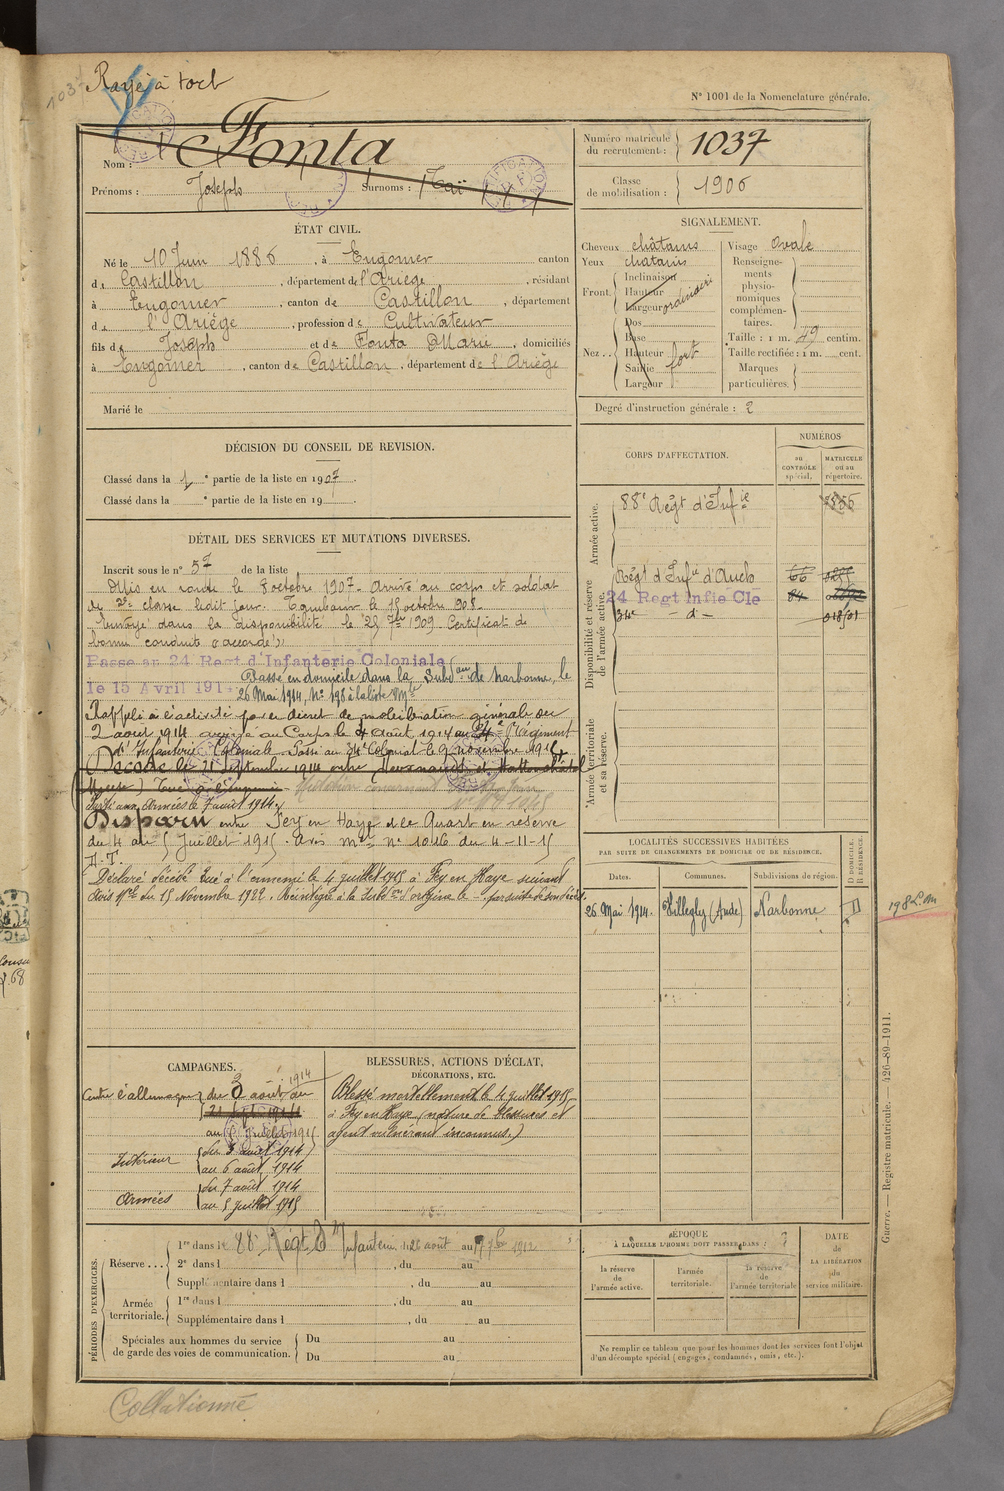 Rayé à tort
1037
N° 1001 de la Nomenclature générale.
Nom : Fonta
Prénoms : Joseph Surnoms :
Numéro matricule du recrutement : 1037
Classe de mobilisation : 1906
ÉTAT CIVIL.
Né le 10 Juin 1886, à Engomer canton
de Castillon, département de l'Ariège, résidant
à Engomer, canton de Castillon, département
de l'Ariège, profession de Cultivateur
fils de Joseph et de Fonta Marie, domiciliés
à Engomer, canton de Castillon, département de l'Ariège
Marié le
SIGNALEMENT.
Cheveux châtains
Yeux châtains
Front : Inclinaison
Hauteur
Largeur
ordinaire
Nez : Dos
Base
Hauteur
Saillie
Largeur
fort
Visage Ovale
Renseignements physionomiques complémentaires.
Taille : 1 m. 49 centim.
Taille rectifiée : 1 m. cent.
Marques particulières.
Degré d'instruction générale : 2
DÉCISION DU CONSEIL DE REVISION.
Classé dans la 1e partie de la liste en 1907.
Classé dans la e partie de la liste en 19
DÉTAIL DES SERVICES ET MUTATIONS DIVERSES.
Inscrit sous le n° 57 de la liste
Mis en route le 8 octobre 1907. Arrivé au corps et soldat
de 2e classe ledit jour. Tambour le 15 octobre 908.
Envoyé dans la disponibilité le 25 7bre 1909. Certificat de
bonne conduite "accordé"
Passé au 24 Regt d'Infanterie Coloniale
le 15 Avril 1914
Passé en domicile dans la Subdon de Narbonne, le
26 Mai 1914, N° 198 à la liste Mle
Rappelé à l'activité par le décret de mobilisation générale du
2 août 1914 arrivé au Corps le 4 août 1914 au 24e Régiment
d'Infanterie Coloniale. Passé au 34e Colonial le 9 novembre 1914
Décédé le 21 Septembre 1914 entre
(Meuse) Tué à l'ennemi
Parti aux Armées le 7 août 1914.
Disparu entre Fey en Haye et le Quart en réserve
du 4 au 5 Juillet 1915. Avis mel n° 1016 du 4-11-15
Déclaré décédé tué à l'ennemi le 4 juillet 1915 à Fey en Haye suivant
Avis Mel du 15 Novembre 1922. Réintégré à la Subdon d'origine le - par suite de son décès.
CORPS D'AFFECTATION.
NUMÉROS
au CONTRÔLE spécial.
MATRICULE ou au répertoire.
Armée active.
88e Régt d'Infie
Disponibilité et réserve de l'armée active.
Régt d'Infie d'Auch 66
24 Regt Infie Cle 84
34e d°- 018501
Armée territoriale et sa réserve.
LOCALITÉS SUCCESSIVES HABITÉES
PAR SUITE DE CHANGEMENTS DE DOMICILE OU DE RÉSIDENCE.
Dates. Communes. Subdivisions de région. D DOMICILE. R RÉSIDENCE.
26 Mai 1914. Villegly (Aude) Narbonne D
CAMPAGNES.
Contre l'allemagne du 3 août 1914 au
21 Sept 1914
au 5 Juillet 1915
Intérieur du 3 août 1914
au 6 août 1914
Armées du 7 août 1914
au 5 juillet 1915
BLESSURES, ACTIONS D'ÉCLAT,
DÉCORATIONS, ETC.
Blessé mortellement le 4 juillet 1915
à Fey en Haye (nature de blessures et
agent vulnérant inconnus.)
PÉRIODES D'EXERCICES.
Réserve ... 1re dans le 88e Régt d'Infanterie, du 26 août au 7bre 1912
2e dans l , du au
Supplémentaire dans l , du au
Armée territoriale. 1re dans l , du au
Supplémentaire dans l , du au
Spéciales aux hommes du service de garde des voies de communication. Du au
Du au
ÉPOQUE
À LAQUELLE L'HOMME DOIT PASSER DANS :
la réserve de l'armée active.
l'armée territoriale.
la réserve de l'armée territoriale
DATE de LA LIBÉRATION du service militaire.
Ne remplir ce tableau que pour les hommes dont les services font l'objet
d'un décompte spécial (engagés, condamnés, omis, etc.).
Guerre. — Registre matricule. — 426-89-1911.
Collationné